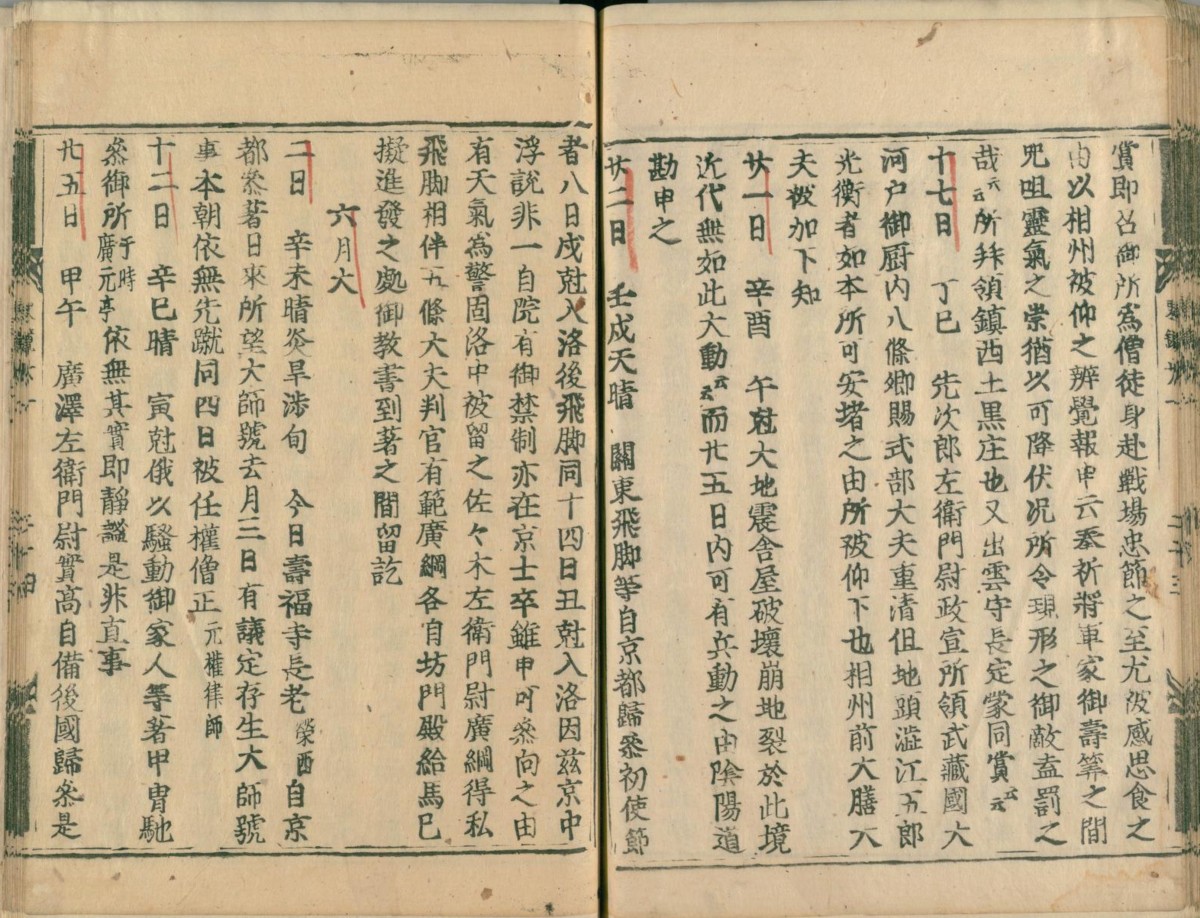 賞即召御所爲僧徒身赴戰場忠節之至尤彼感思食之
由以相州被仰之辨覺報申云奉祈將軍家御壽筭之間
咒咀靈氣之崇猶以可降伏况所令現形之御敵盍罰之
哉云云所拜領鎮西土黒庄也又出雲守長定蒙同賞云云
十七日 丁巳 先次郎左衛門尉政宣所領武藏國大
河戸御厨内八條郷賜式部大夫重清但地頭澁江五郎
光衡者如本所可安堵之由所被仰下也相州前大膳大
夫被加下知
廿一日 辛酉 午尅大地震舎屋破壞崩地裂於此境
近代無如此大動云云而廿五日内可有兵動之由陰陽道
勘申之
廿二日 壬戌天晴 關東飛脚等自京都歸參初使節
者八日戌尅入洛後飛脚同十四日丑尅入洛因兹京中
浮說非一自院有御禁制亦在京士卒雖申可參向之由
有天氣爲警固洛中被留之佐々木左衛門尉廣綱得私
飛脚相伴五條大夫判官有範廣綱各自坊門殿給馬已
擬進發之處御教書到著之間留訖
六月大
二日 辛未晴炎旱渉旬 今日壽福寺長老榮西自京
都參著日來所望大師號去月三日有議定存生大師號
事本朝依無先蹴同四日被任權僧正元權律師
十二日 辛巳晴 寅尅俄以騷動御家人等著甲冑馳
參御所于時廣元亭依無其實即靜謐是非直事
廿五日 甲午 廣澤左衛門尉實高自備後國歸參是